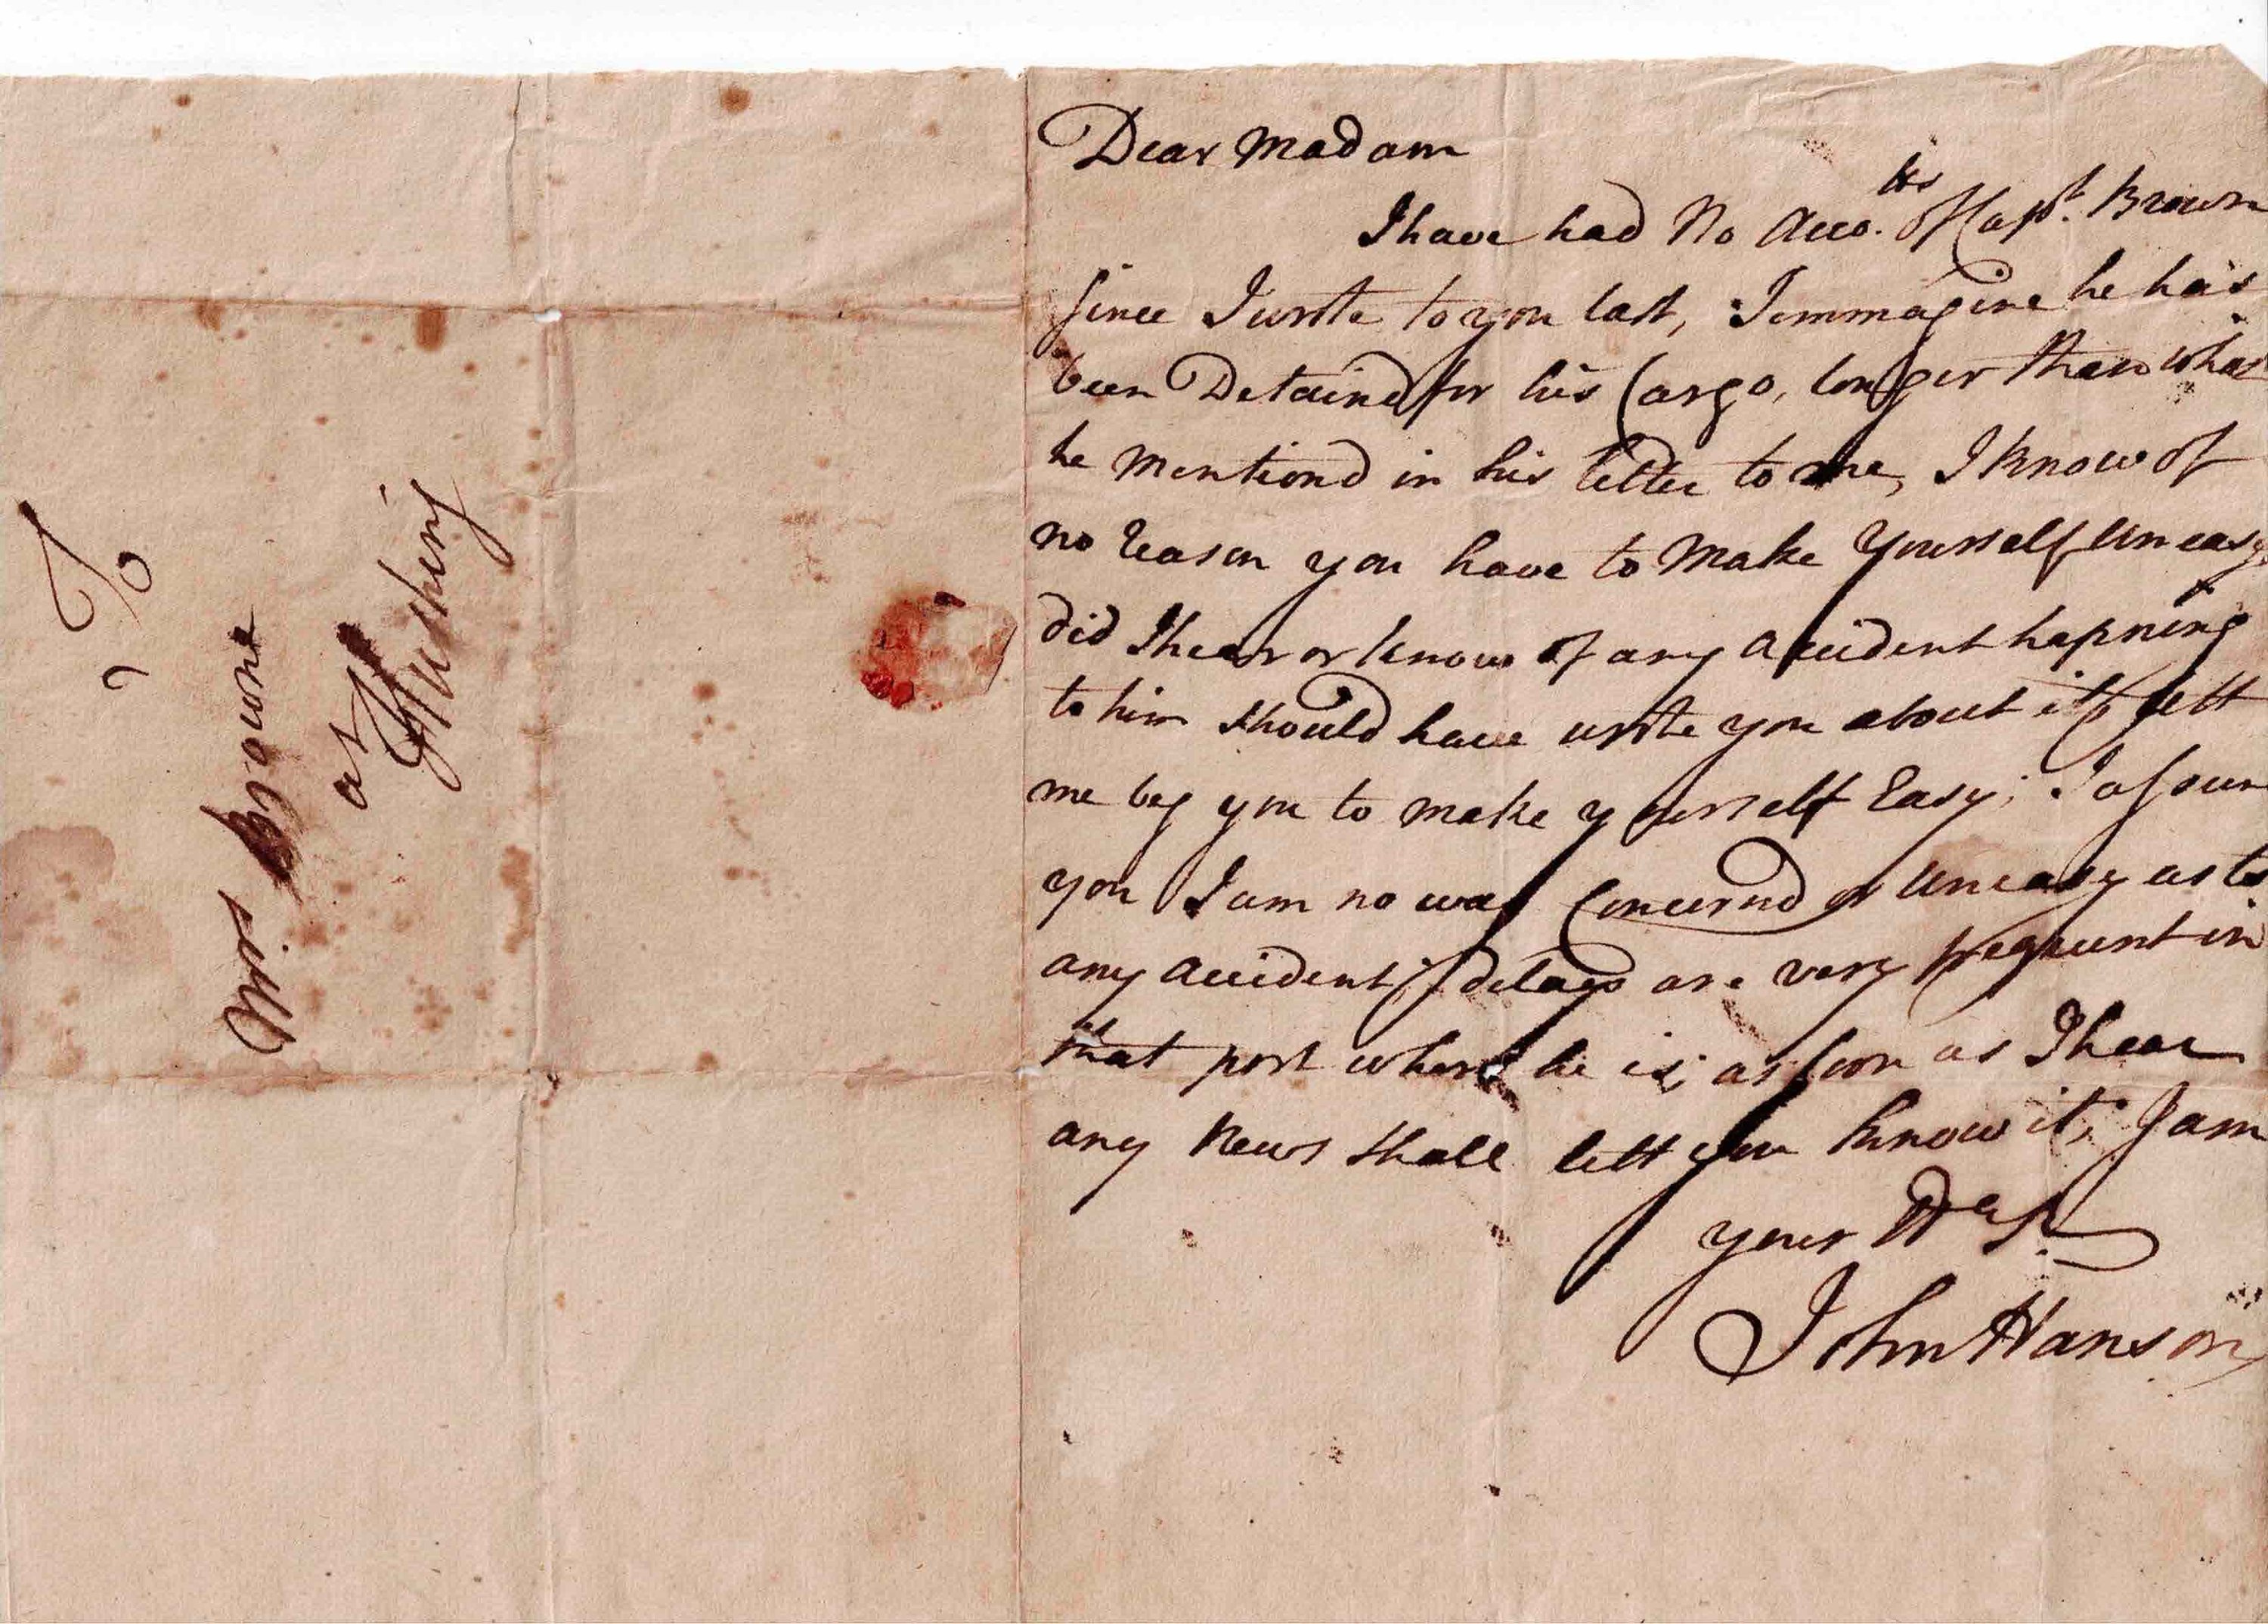 To
Mrs Browne
at
Flushing
Dear Madam
I have had No Acco.ts of Capt. Brown
since I wrote to you last, I immagine he has
been Detaind for his Cargo, longer than what
he Mentiond in his letter to me, I know of
no reason you have to Make Yourself Uneasy
did I hear or know of any accident hapning
to him should have wrote you about it, lett
me beg you to make yourself Easy; I assure
you I am no way Concernd or Uneasy as to
any accident, delays are very frequent in
that port where he is; as soon as I hear
any News shall lett you know it, I am
your
John Hanson